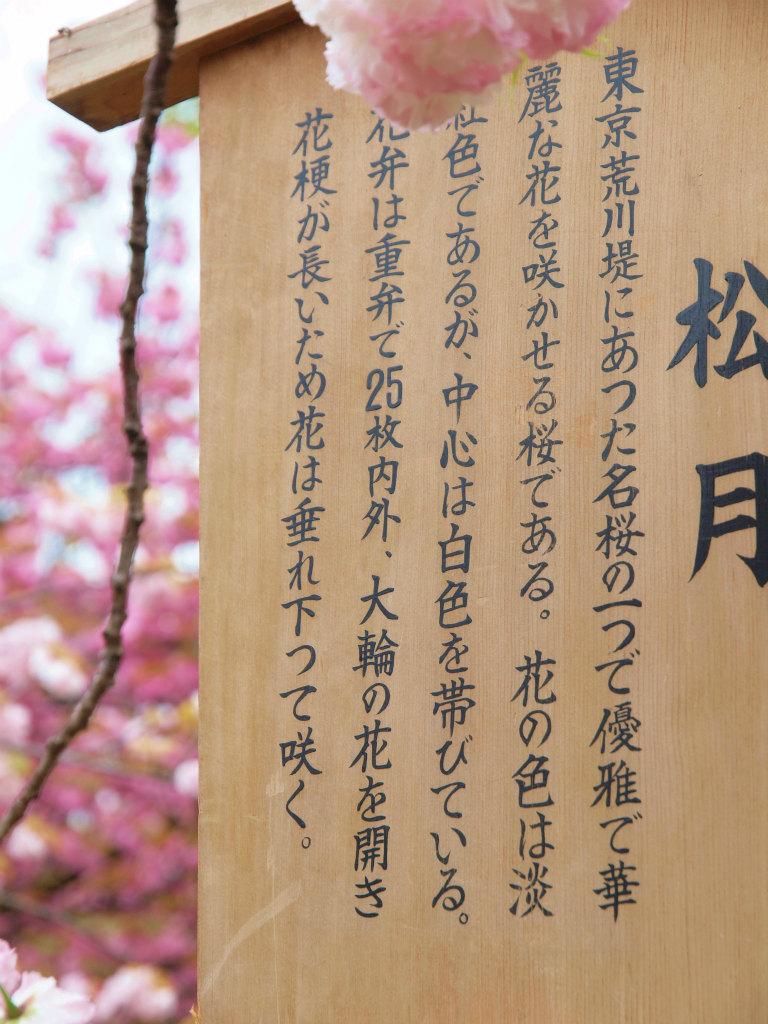 松月
東京荒川堤にあつた名桜の一つで優雅で華
麗な花を咲かせる桜である。花の色は淡
紅色であるが、中心は白色を帯びている。
花弁は重弁で25枚内外、大輪の花を開き
花梗が長いため花は垂れ下つて咲く。